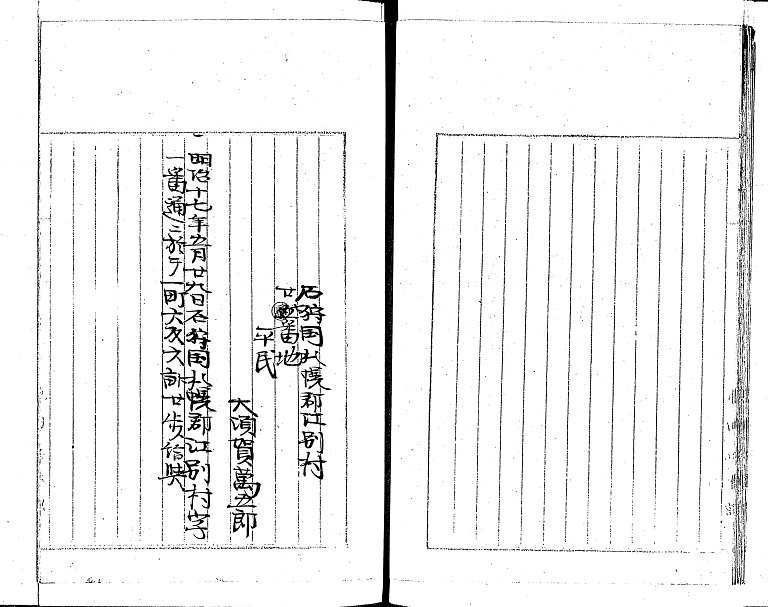 石狩国札幌郡江別村
廿番地
平民
大須賀萬五郎
明治十七年五月廿九日石狩国札幌郡江別村字
一番通ニ於テ一町六反六畝廿歩給與